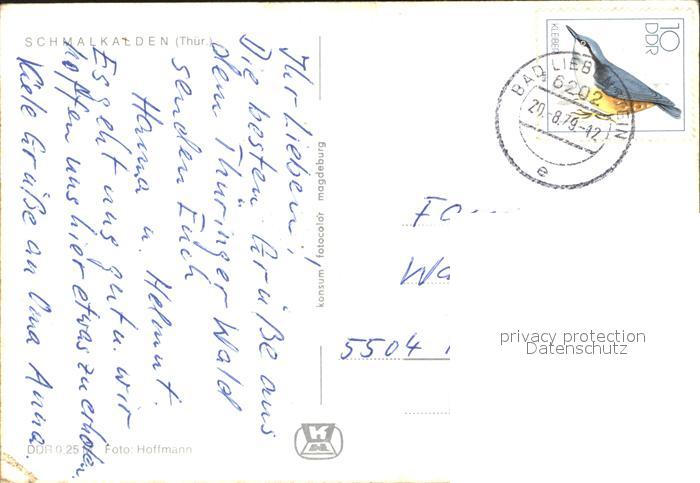 SCHMALKALDEN (Thür.)
Ihr Lieben!
Die besten Grüße aus
dem Thüringer Wald
senden Euch
Hanna u. Helmut.
Es geht uns gut u. wir
hoffen uns hier etwas zu erholen.
Viele Grüße an Oma Anna.
DDR 0,25 Foto: Hoffmann
konsum fotocolor magdeburg
KLEIBER
10
DDR
BAD LIEBENSTEIN
6202
20.-8.79.-12
e
Wa
5504
privacy protection
Datenschutz